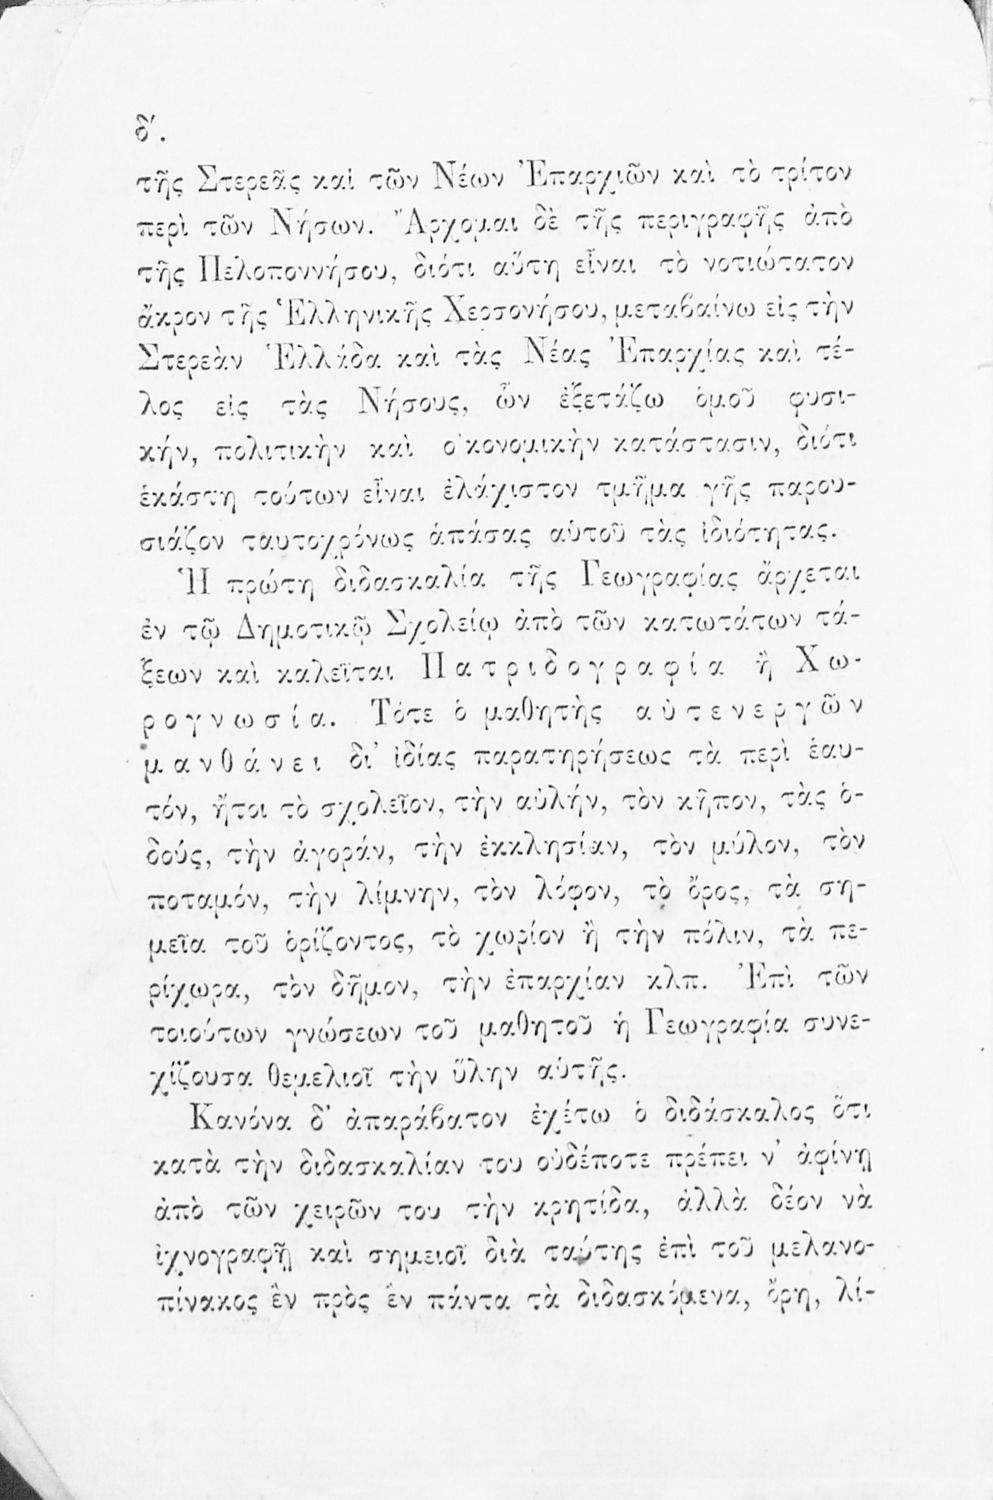 δ΄.
τῆς Στερεᾶς καὶ τῶν Νέων Ἐπαρχιῶν καὶ τὸ τρίτον
περὶ τῶν Νήσων. Ἄρχομαι δὲ τῆς περιγραφῆς ἀπὸ
τῆς Πελοποννήσου, διότι αὕτη εἶναι τὸ νοτιώτατον
ἄκρον τῆς Ἑλληνικῆς Χερσονήσου, μεταβαίνω εἰς τὴν
Στερεὰν Ἑλλάδα καὶ τὰς Νέας Ἐπαρχίας καὶ τέ-
λος εἰς τὰς Νήσους, ὧν ἐξετάζω ὁμοῦ φυσι-
κήν, πολιτικὴν καὶ οἰκονομικὴν κατάστασιν, διότι
ἑκάστη τούτων εἶναι ἐλάχιστον τμῆμα γῆς παρου-
σιάζον ταυτοχρόνως ἁπάσας αὐτοῦ τὰς ἰδιότητας.
Ἡ πρώτη διδασκαλία τῆς Γεωγραφίας ἄρχεται
ἐν τῷ Δημοτικῷ Σχολείῳ ἀπὸ τῶν κατωτάτων τά-
ξεων καὶ καλεῖται Πατριδογραφία ἢ Χω-
ρογνωσία. Τότε ὁ μαθητὴς αὐτενεργῶν
μανθάνει δι᾽ ἰδίας παρατηρήσεως τὰ περὶ ἑαυ-
τόν, ἤτοι τὸ σχολεῖον, τὴν αὐλήν, τὸν κῆπον, τὰς ὁ-
δούς, τὴν ἀγοράν, τὴν ἐκκλησίαν, τὸν μύλον, τὸν
ποταμόν, τὴν λίμνην, τὸν λόφον, τὸ ὄρος, τὰ ση-
μεῖα τοῦ ὁρίζοντος, τὸ χωρίον ἢ τὴν πόλιν, τὰ πε-
ρίχωρα, τὸν δῆμον, τὴν ἐπαρχίαν κλπ. Ἐπὶ τῶν
τοιούτων γνώσεων τοῦ μαθητοῦ ἡ Γεωγραφία συνε-
χίζουσα θεμελιοῖ τὴν ὕλην αὐτῆς.
Κανόνα δ᾽ ἀπαράβατον ἐχέτω ὁ διδάσκαλος ὅτι
κατὰ τὴν διδασκαλίαν του οὐδέποτε πρέπει ν᾽ ἀφίνῃ
ἀπὸ τῶν χειρῶν του τὴν κρητίδα, ἀλλὰ δέον νὰ
ἰχνογραφῇ καὶ σημειοῖ διὰ ταύτης ἐπὶ τοῦ μελανο-
πίνακος ἓν πρὸς ἓν πάντα τὰ διδασκόμενα, ὄρη, λί-